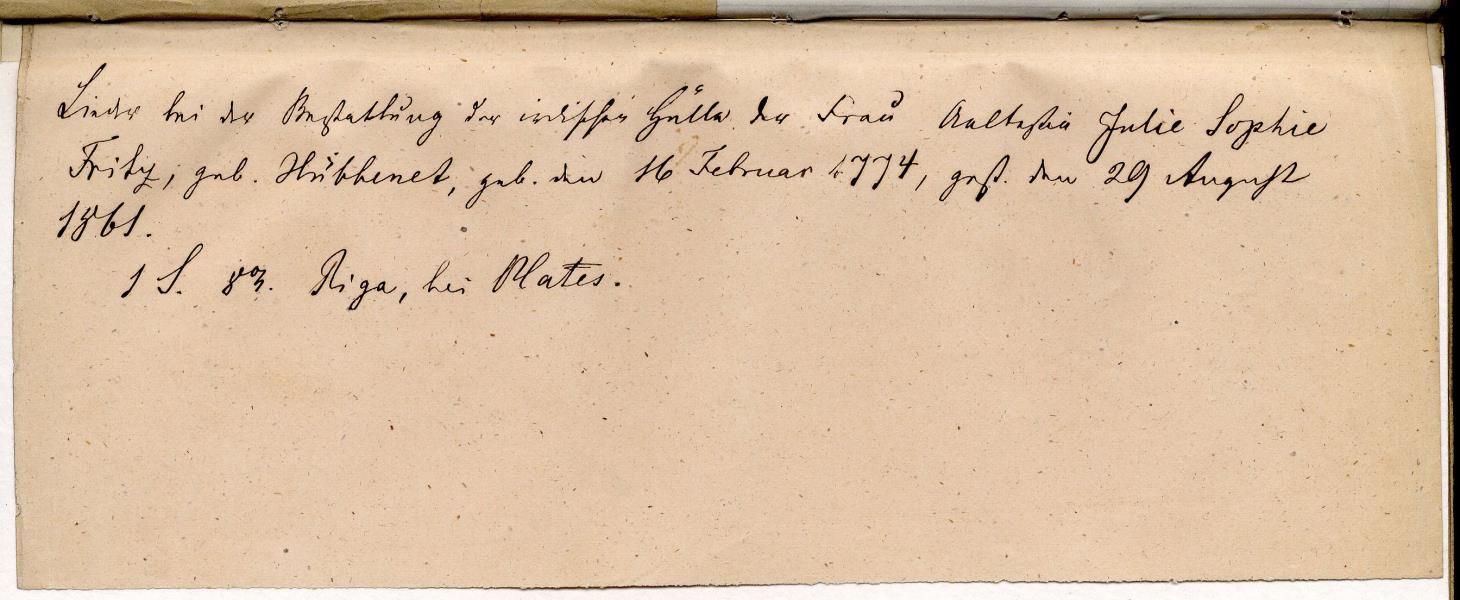 Lieder bei der Bestattung der irdischen Hülle der Frau Aeltestin Julie Sophie
Fritz, geb. Hübbenet, geb. den 16 Februar 1774, gest. den 29 August
1861.
1 S. 8º. Riga, bei Plates.